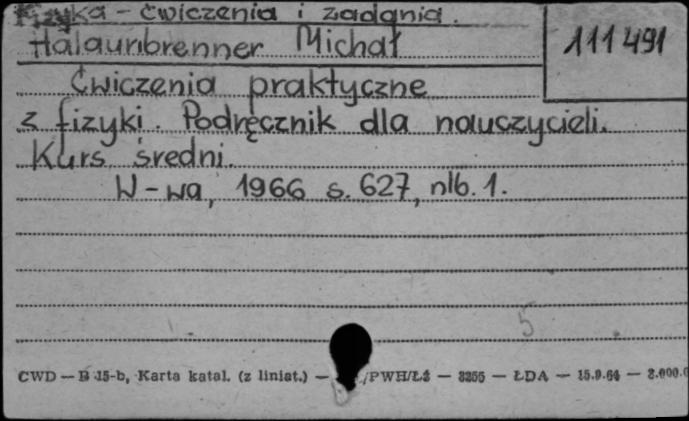 Fizyka - ćwiczenia i zadania.
Halaunbrenner Michał
111491
Ćwiczenia praktyczne
z fizyki. Podręcznik dla nauczycieli.
Kurs średni.
W-wa, 1966 s. 627, nlb. 1.
5
CWD — B 15-b, Karta katal. (z liniat.) — /PWH/Łż — 3255 — ŁDA — 15.9.64 — 2.000.0